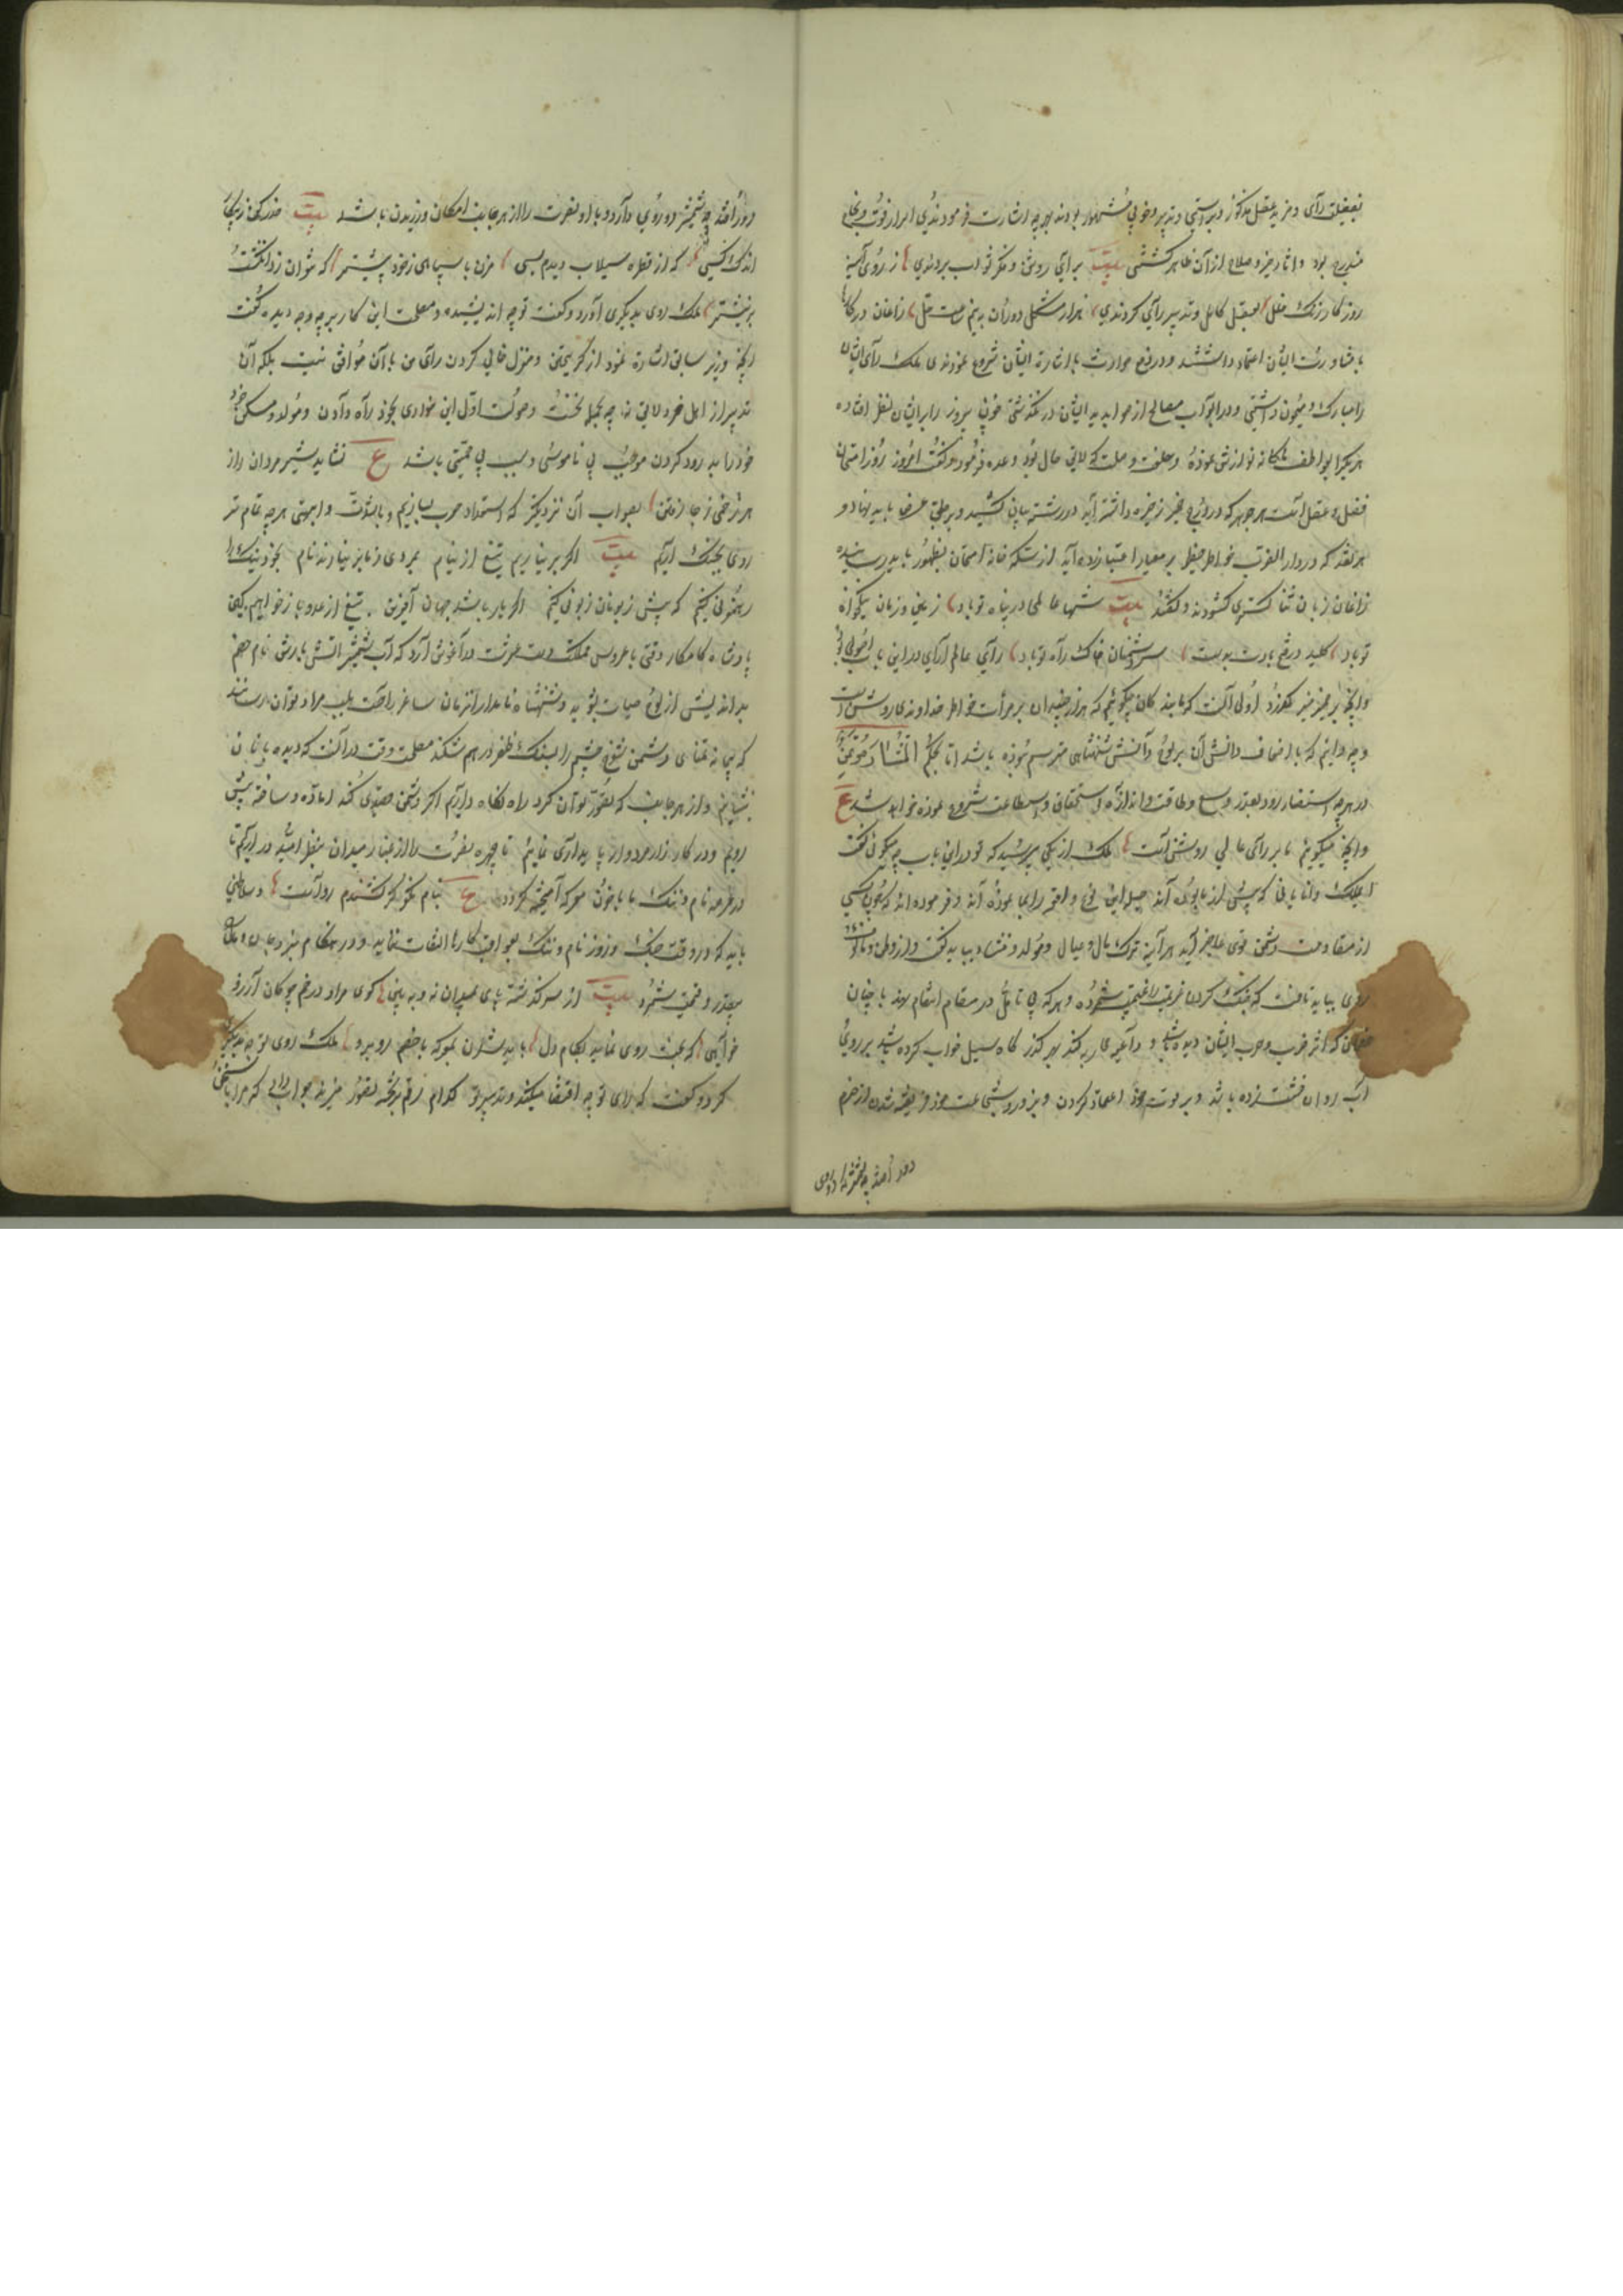 بفضیلت رأی و مزید عقل مذکور و براستی و تدبیر و خوبی مشهور بودند بهر چه اشارت فرمودندی اسرار قوت و نجاح
مندرج بود و اثار خیر و صلاح از آن ظاهر گشتی بیت برأی روشن و فکر صواب بردندی ز روی آینه
روزگار زنک خلل بعقل کامل و تدبیر رأی کردندی هزار مشکل دوران به نیم ساعت حل زاغان در کارها
با مشاورت ایشان اعتماد داشتند و در دفع حوادث باشارت ایشان شروع نمودندی ملک رأی ایشان
را مبارک و میمون داشتی و در ابواب مصالح از صوابدید ایشان درنگذشتی چون پیروز را بر ایشان نظر افتاده
هر یک را بعواطف ملکانه نوازش نموده و خلعت و صلت که لایق حال بود وعده فرمود و گفت امروز روز امتحان
فضل و عقل است هر جوهر که در درج ضمیر ذخیره داشته‌اید در رشته بیان کشید و بر طبق عرض باید نهاد و
هر نقد که در دار الضرب خواطر حفیظ بر معیار اعتبار زده‌اید از سکه خانه امتحان بظهور باید رسانیده
زاغان زبان ثنا گستری گشودند و گفتند بیت شها عالمی در پناه تو باد زمین و زمان نیکخواه
تو باد کلید در فتح بادت بدست سر دشمنان خاک راه تو باد رأی عالم آرای در این باب اصوب
و انچه بر ضمیر منیر گذرد اولی است که ما بندگان چه گوئیم که هزار چندان بر مرأت خاطر خداوندی روشنست
و چه دانیم که باضعاف دانش آن بر لوح دانش شهنشاهی مرتسم نبوده باشد اما بحکم المستشار مؤتمن
در هر چه استفسار رود بقدر وسع و طاقت و اندازه استحقاق و استطاعت شروع نموده خواهد شد ع
و انچه میگوئیم ما بر رأی عالی روشن است ملک از یکی پرسید که تو در این باب چه میگوئی گفت
ای ملک دانایانی که پیش از ما بوده‌اند حیله این نوع واقعه را بما نموده‌اند و فرموده‌اند که چون کسی
از مقاومت دشمن قوی عاجز آید هر آینه ترک مال و منال و مولد و منشاء بباید گفت و از وطن و مأوی
روی بباید تافت که جنک کردن
خصمان که اثر ضرب و حرب ایشان دیده باشد و بر گذرگاه سیل خواب کرده باشد بر روی
آب روان خشت زده باشد و بر قوت خود اعتماد کردن و بزور و شجاعت خود فریفته شدن از حزم
دور افتد چه شمشیر دو روی
دور افتد چه شمشیر دو روی دارد و باد نصرت را از هر جانب امکان وزیدن باشد بیت حذر کن ز پیکار
اندک کسی که از قطره سیلاب دیدم بسی مزن با سپاهی ز خود بیشتر که نتوان زد انگشت
بر نیشتر ملک روی بدیگری آورد و گفت تو چه اندیشیده و مصلحت این کار بر چه وجه دیده گفت
انچه وزیر سابق اشارة نمود از گریختن و منزل خالی کردن رأی من با آن موافق نیست بلکه آن
تدبیر از اهل خرد لایق نه چه بحمله نخست و صولت اول این خواری بخود راه دادن و مولد و مسکن خود
خود را بدرود کردن موجب بی ناموسی و سبب بی حمیتی باشد ع نشاید شیر مردان را از
هر زخمی ز جا رفتن بصواب آن نزدیکتر که استعداد حرب بسازیم و با شوکت و ابهتی هر چه تمام تر
روی بجنک اریم بیت اگر برنیاریم تیغ از نیام بمردی ز ما بر نیارند نام بخود ننک را
رهنمونی کنیم که پیش زبونان زبونی کنیم اگر یار باشد جهان آفرین بتیغ از عدو باز خواهیم کین
پادشاه کامکار وقتی با عروس مملکت دست عشرت در آغوش آرد که آب شمشیر آتش بارش نام خصم
بداندیش از لوح حیات بشوید و شهنشاه نامدار آنزمان ساغر راحت بلب مراد تواند رسانید
که پیمانه تمنای دشمن شوخ چشم را بسنک ظفر در هم شکند مصلحت وقت در آنست که دیده بانان
بنشانیم و از هر جانب که تصور توان کرد راه نگاه داریم اگر دشمن قصدی کند اماده و ساخته پیش
رویم و در کارزار مردوار پایداری نمائیم تا چهره نصرت را از غبار میدان بنظر امید در آریم تا
در عرصه نام و ننک با با خون معرکه آمیخته گردد ع بنام نکو گر کشندم رواست و سلاطین
باید که در وقت جنک و روز نام و ننک بعواقب کارها التفات ننماید و در هنگام نبرد جان و مال را
بیقدر و قیمت شمرد بیت از سر گذشته پای بمیدان نه و ببین گوی مراد در خم چوگان آرزو
خواهی که بخت روی نماید بکام دل باید شدن بمعرکه با خصم روبرو ملک روی
کرد و گفت که رای تو چه اقتضا میکند و تدبیر تو کدام رقم بر تخته تصور میزند جواب داد که مرا با سخن